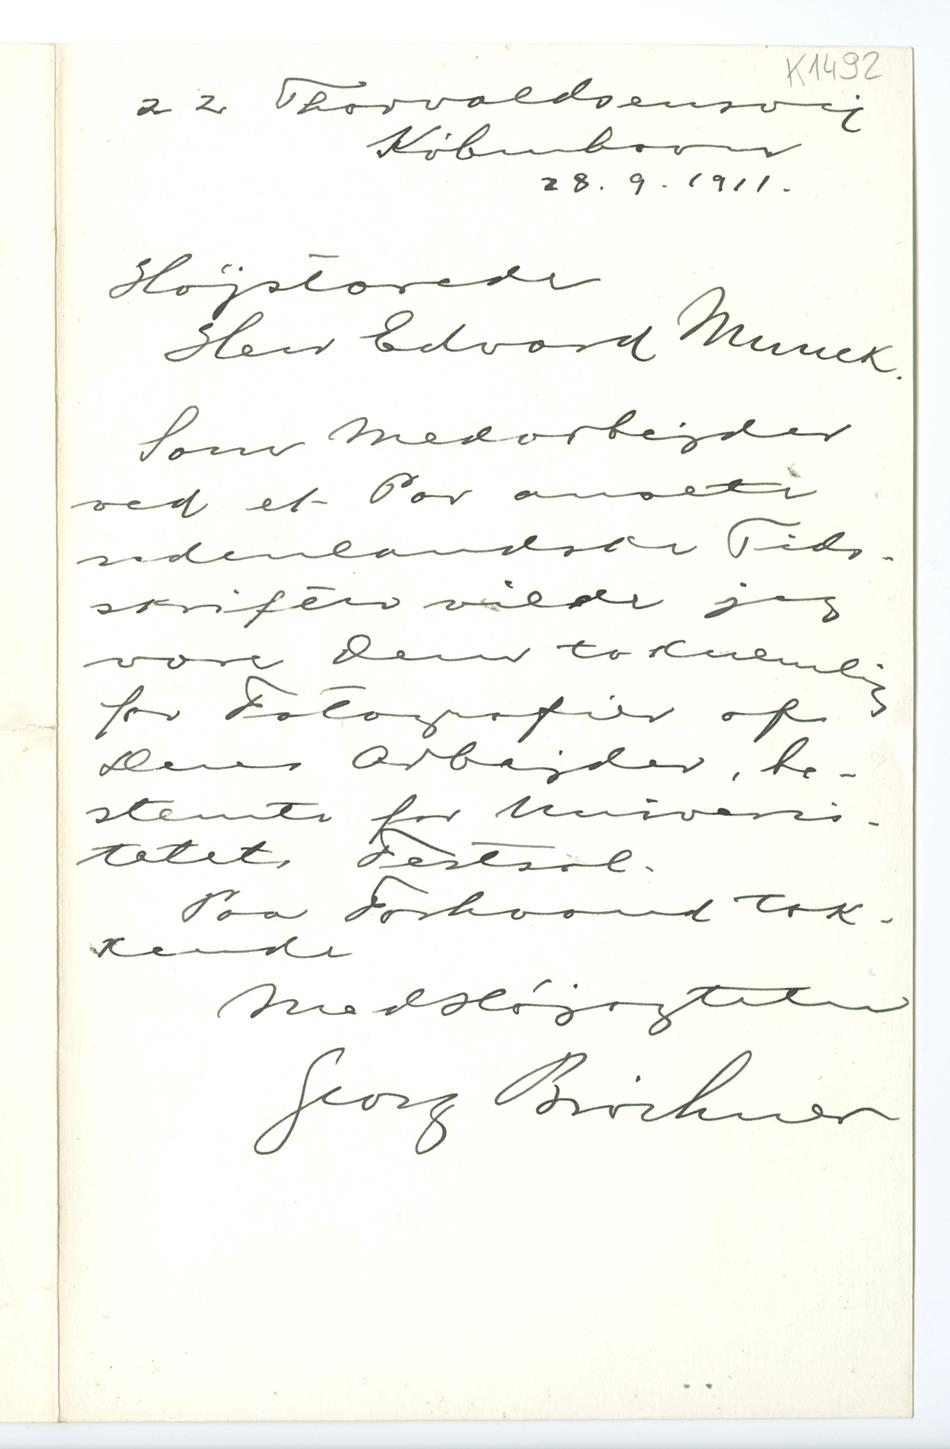 K1492
22 Thorvaldsensvej
København
28.9.1911.
Højstærede
Herr Edvard Munck.
Som Medarbejder
ved et Par ansete
udenlandske Tids-
skrifter vilde jeg
være Dem taknemlig
for Fotografier af
Deres Arbejder, be-
stemte for Universi-
tetets Festsal.
Paa Forhaand tak-
kende
Med Højagtelse
Georg Bröchner